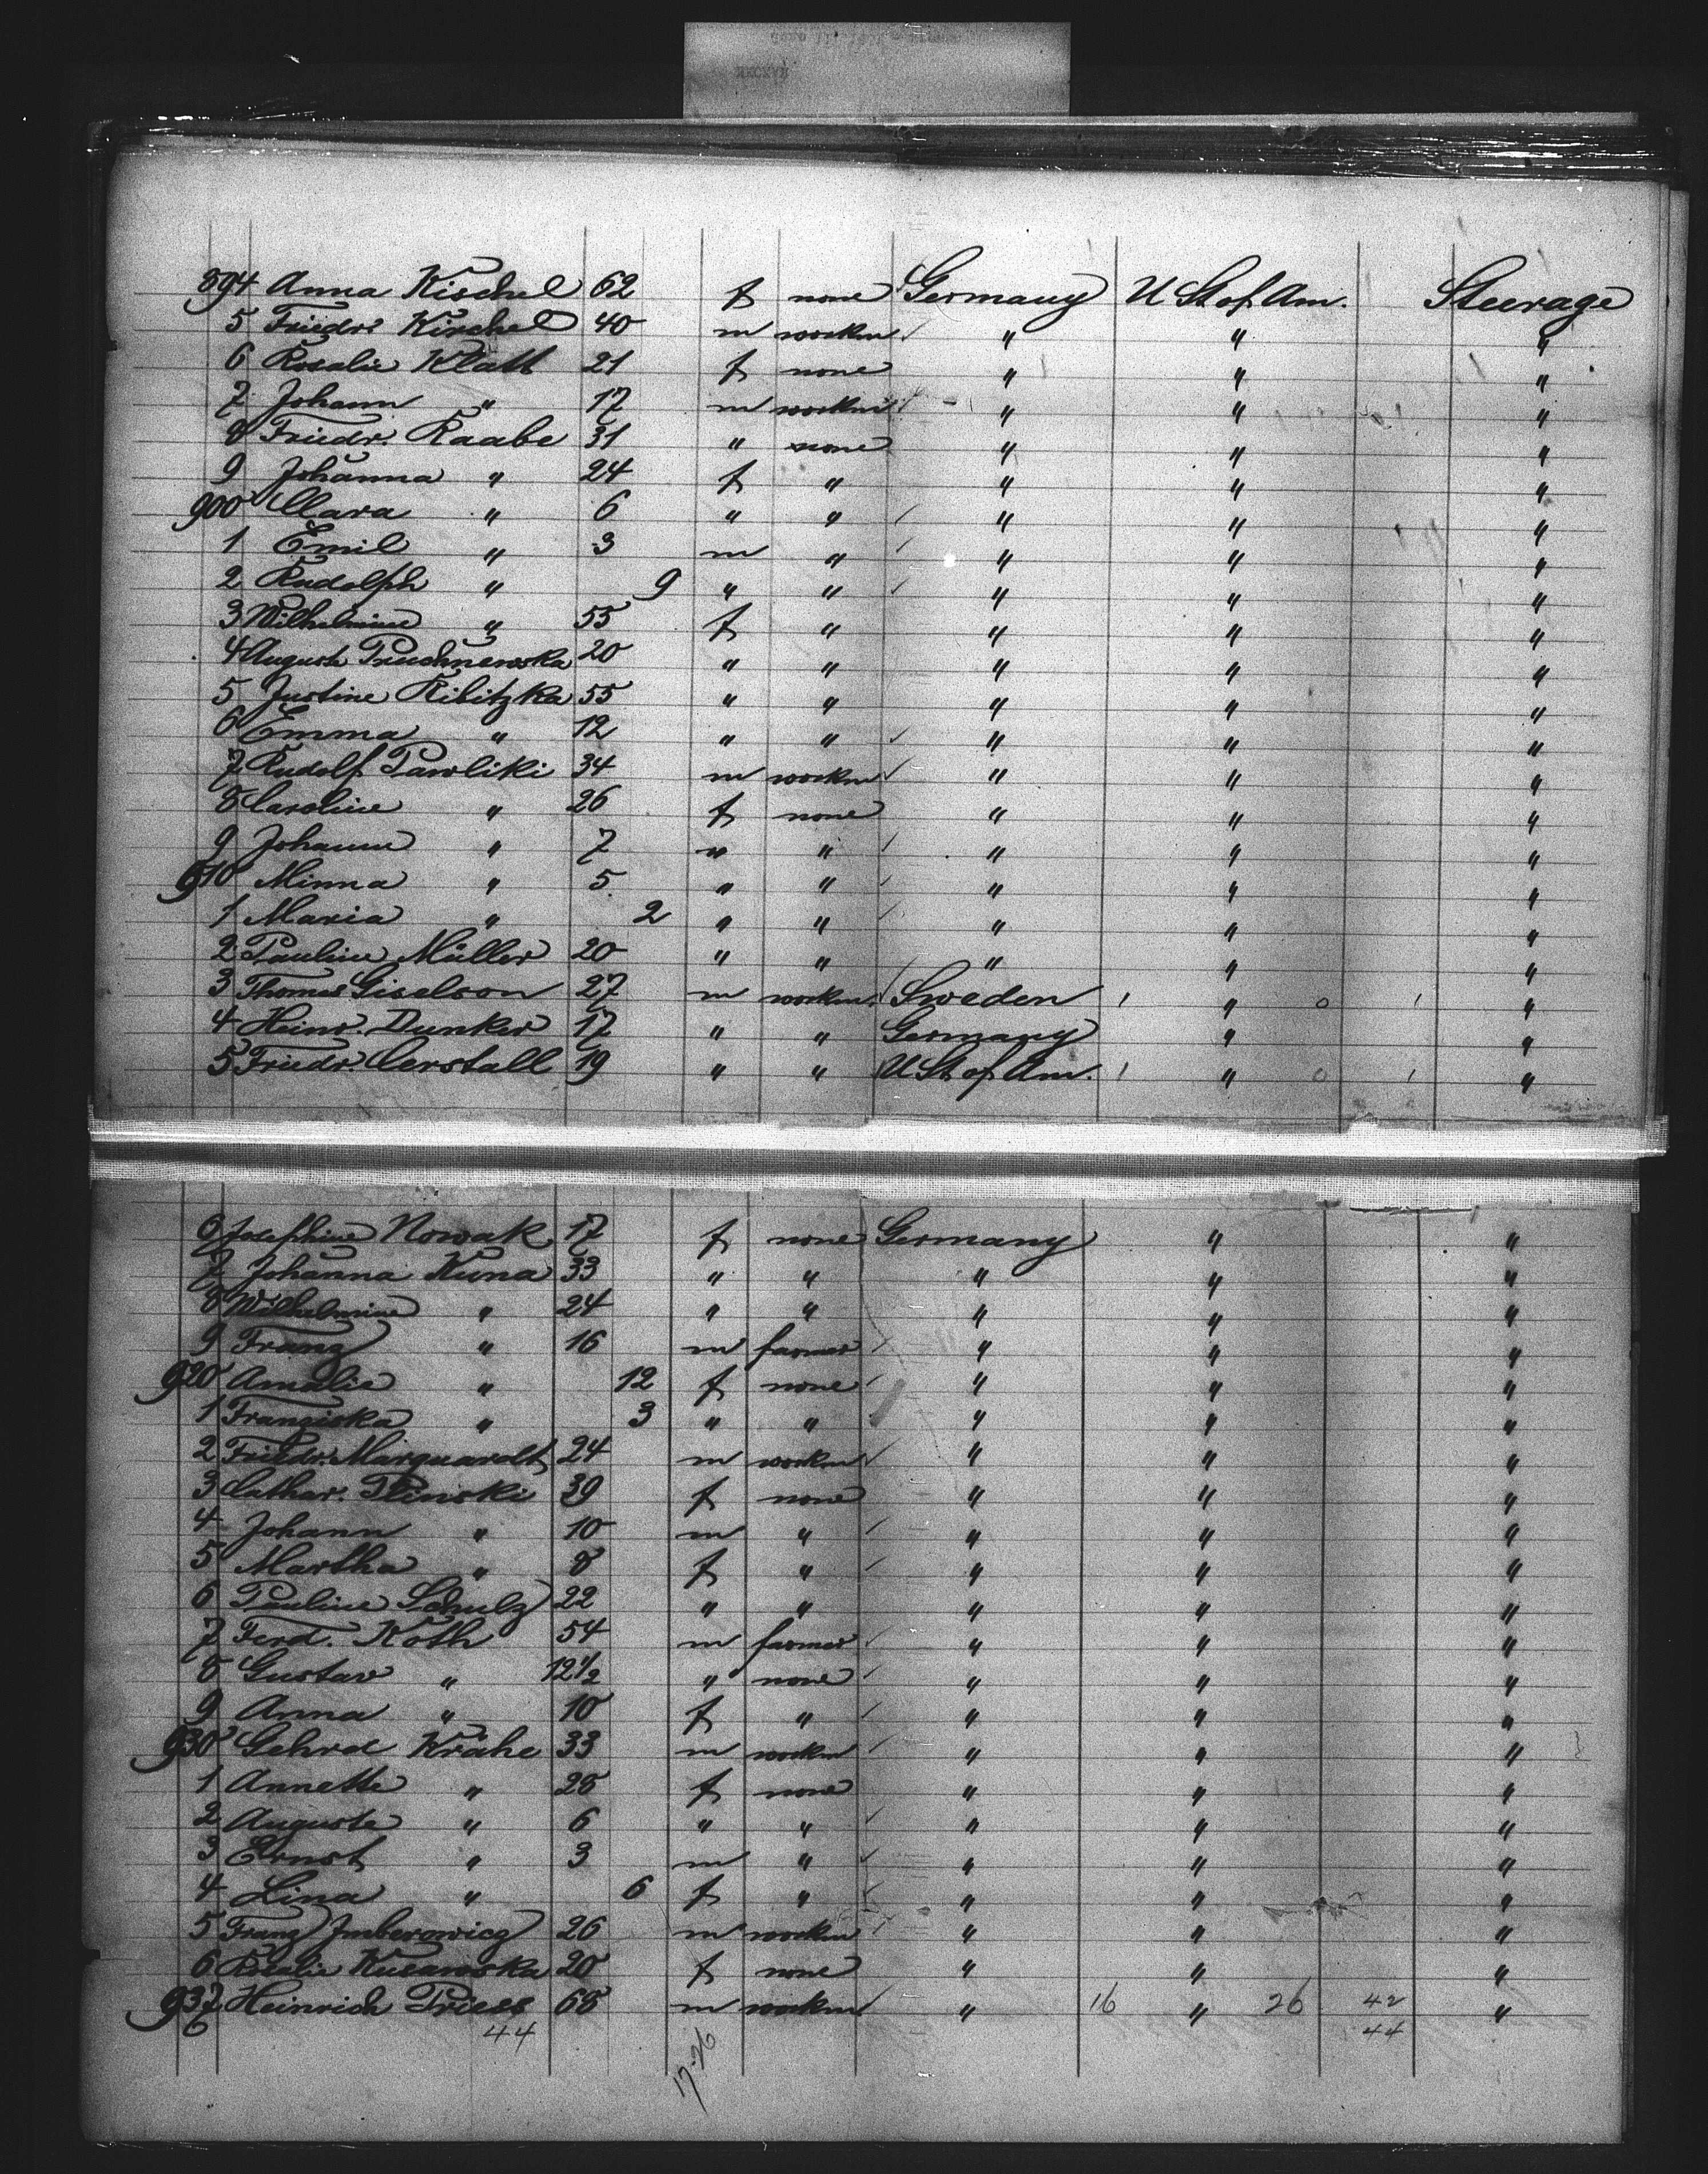 894 Anna Kischel 62 f none Germany U St of Am. Steerage
5 Friedr. Kischel 40 m workm " " "
6 Rosalie Klatt 21 f none " " "
7 Johann " 17 m workm " " "
8 Friedr. Raabe 31 " none " " "
9 Johanna " 24 f " " " "
900 Clara " 6 " " " " "
1 Emil " 3 m " " " "
2 Rudolph " 9 " " " " "
3 Wilhelmine " 55 f " " " "
4 Auguste 20 " " " " "
5 Justine Ribitzka 55 " " " " "
6 Emma " 12 " " " " "
7 Rudolf Pawliki 34 m workm " " "
8 Caroline " 26 f none " " "
9 Johann " 7 " " " " "
910 Minna " 5 " " " " "
1 Maria " 2 " " " " "
2 Pauline Müller 20 " " " " "
3 Thomas Giselson 27 m workm. Sweden " "
4 Heinr. Dunker 17 " " Germany " "
5 Friedr. Cerstall 19 " " U St of Am. " "
6 Josephine Nowak 17 f none Germany " "
7 Johanna Kuna 33 " " " " "
8 Wilhelmine " 24 " " " " "
9 Franz " 16 m farmer " " "
920 Amalie " 12 f none " " "
1 Franziska " 3 " " " " "
2 Friedr. Marquardt 24 m workm " " "
3 Cathar. Plinski 39 f none " " "
4 Johann " 10 m " " " "
5 Martha " 8 f " " " "
6 Pauline Schulz 22 " " " " "
7 Ferd. Koth 54 m farmer " " "
8 Gustav " 12 1/2 " none " " "
9 Anna " 10 f " " " "
930 Gehrd Krähe 33 m workm " " "
1 Annette " 28 f none " " "
2 Auguste " 6 " " " " "
3 Ernst " 3 m " " " "
4 Lina " 6 f " " " "
5 Franz Imberowicz 26 m workm " " "
6 Rosalie Kusawska 20 f none " " "
937 Heinrich Priess 68 m workm " 16 " 26 42 "
44 17-26 44